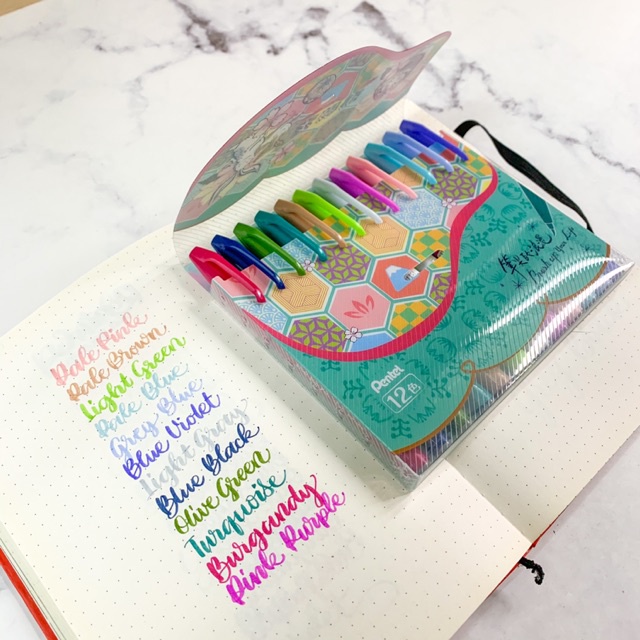 Pale Pink
Pale Brown
Light Green
Pale Blue
Grey Blue
Blue Violet
Light Gray
Blue Black
Olive Green
Turquoise
Burgandy
Pink Purple
Pentel
12色